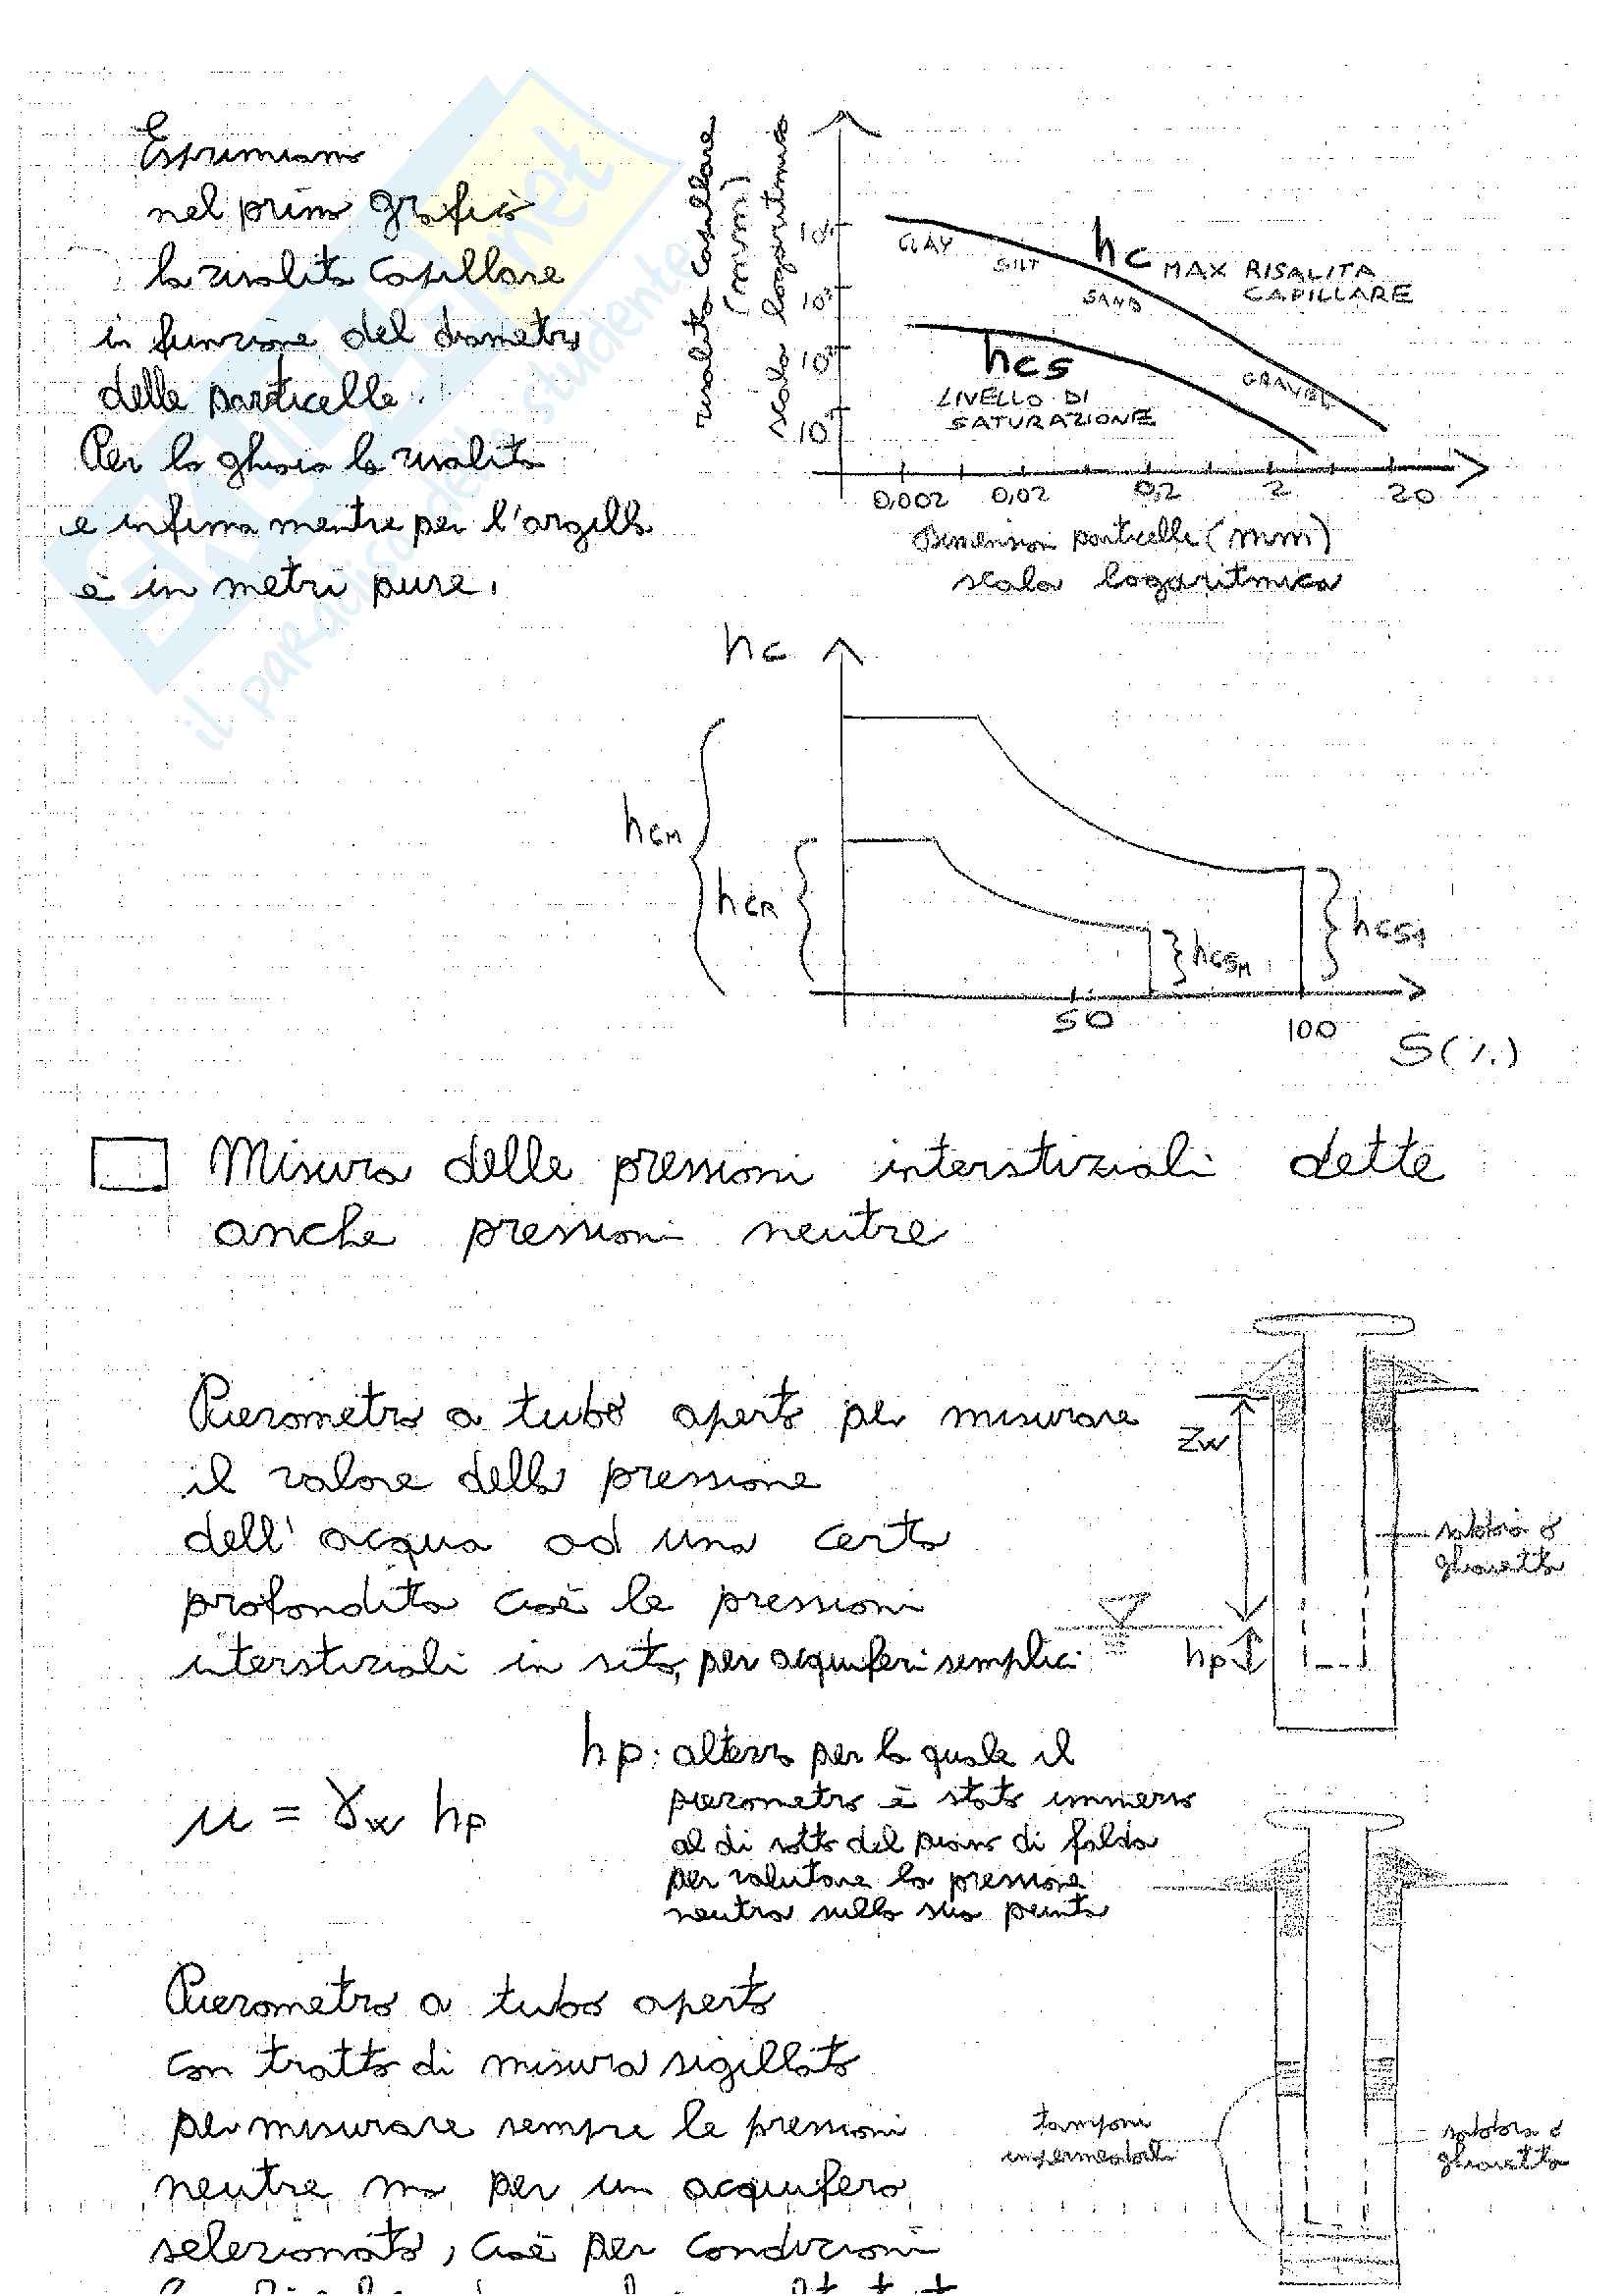 Esprimiamo
nel primo grafico
la risalita capillare
in funzione del diametro
delle particelle.
Per la ghiaia la risalita
e infima mentre per l'argilla
è in metri pure.
risalita capillare
(mm)
scala logaritmica
10⁴
10³
10²
10¹
CLAY
SILT
SAND
GRAVEL
hc MAX RISALITA
CAPILLARE
hcs
LIVELLO DI
SATURAZIONE
0,002 0,02 0,2 2 20
Dimensioni particelle (mm)
scala logaritmica
hc
hcM
hcR
hcSM
hcS1
50 100
S(%)
Misura delle pressioni interstiziali dette
anche pressioni neutre
Piezometro a tubo aperto per misurare
il valore della pressione
dell'acqua ad una certa
profondita cioè le pressioni
interstiziali in sito, per acquiferi semplici
zw
hp
sabbia o
ghiaietto
u = γw hp
hp: altezza per la quale il
piezometro è stato immerso
al di sotto del piano di falda
per valutare la pressione
neutra sulla sua punta
Piezometro a tubo aperto
con tratto di misura sigillato
per misurare sempre le pressioni
neutre ma per un acquifero
selezionato, cioè per condizioni
tamponi
impermeabili
sabbia o
ghiaietto